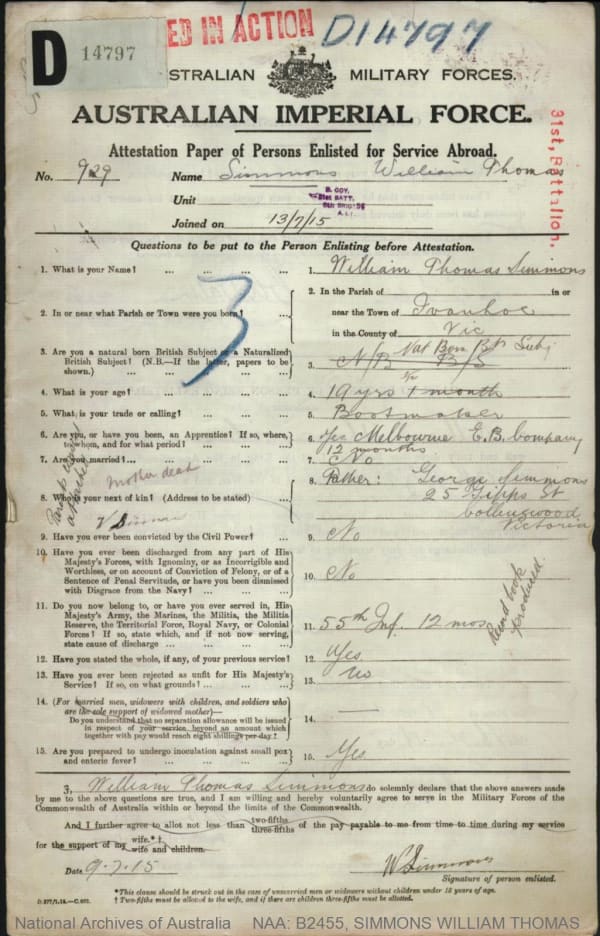 D 14797
ED IN ACTION
D14797
STRALIAN MILITARY FORCES.
AUSTRALIAN IMPERIAL FORCE.
Attestation Paper of Persons Enlisted for Service Abroad.
No. 929 Name Simmons William Thomas
Unit B. COY. 31st BATT. 8th BRIGADE A.I.F.
31st, Battalion.
Joined on 13/7/15
Questions to be put to the Person Enlisting before Attestation.
1. What is your Name? ... ... ... ... 1. William Thomas Simmons
2. In or near what Parish or Town were you born? 2. In the Parish of in or
near the Town of Ivanhoe
in the County of Vic
3
Nat Born Bt Subj
3. Are you a natural born British Subject or a Naturalized
British Subject? (N.B.—If the latter, papers to be
shown.) ... ... ... ... 3. N/B B/S
4. What is your age? ... ... ... ... 4. 19 yrs 1 month
5. What is your trade or calling? ... ... ... 5. Bootmaker
6. Are you, or have you been, an Apprentice? If so, where,
to whom, and for what period? ... ... ... 6. Yes Melbourne E.B. Company
12 months
7. Are you married? ... ... ... ... 7. No
Mother dead
8. Who is your next of kin? (Address to be stated) ... 8. Father: George Simmons
25 Gipps St
Collingwood
Victoria
9. Have you ever been convicted by the Civil Power? ... 9. No
10. Have you ever been discharged from any part of His
Majesty's Forces, with Ignominy, or as Incorrigible and
Worthless, or on account of Conviction of Felony, or of a
Sentence of Penal Servitude, or have you been dismissed
with Disgrace from the Navy? ... ... ... 10. No
11. Do you now belong to, or have you ever served in, His
Majesty's Army, the Marines, the Militia, the Militia
Reserve, the Territorial Force, Royal Navy, or Colonial
Forces? If so, state which, and if not now serving,
state cause of discharge ... ... ... 11. 55th Inf. 12 mos
Record book
produced.
12. Have you stated the whole, if any, of your previous service? 12. Yes
13. Have you ever been rejected as unfit for His Majesty's
Service? If so, on what grounds? ... ... ... 13. No
14. (For married men, widowers with children, and soldiers who
are the sole support of widowed mother)—
Do you understand that no separation allowance will be issued
in respect of your service beyond an amount which
together with pay would reach eight shillings per day? 14. —
15. Are you prepared to undergo inoculation against small pox
and enteric fever? ... ... ... 15. Yes
I, William Thomas Simmons do solemnly declare that the above answers made
by me to the above questions are true, and I am willing and hereby voluntarily agree to serve in the Military Forces of the
Commonwealth of Australia within or beyond the limits of the Commonwealth.
And I further agree to allot not less than two-fifths three-fifths of the pay payable to me from time to time during my service
for the support of my wife.*† wife and children.
Date 9.7.15 W Simmons
Signature of person enlisted.
*This clause should be struck out in the case of unmarried men or widowers without children under 18 years of age.
† Two-fifths must be allotted to the wife, and if there are children three-fifths must be allotted.
National Archives of Australia NAA: B2455, SIMMONS WILLIAM THOMAS